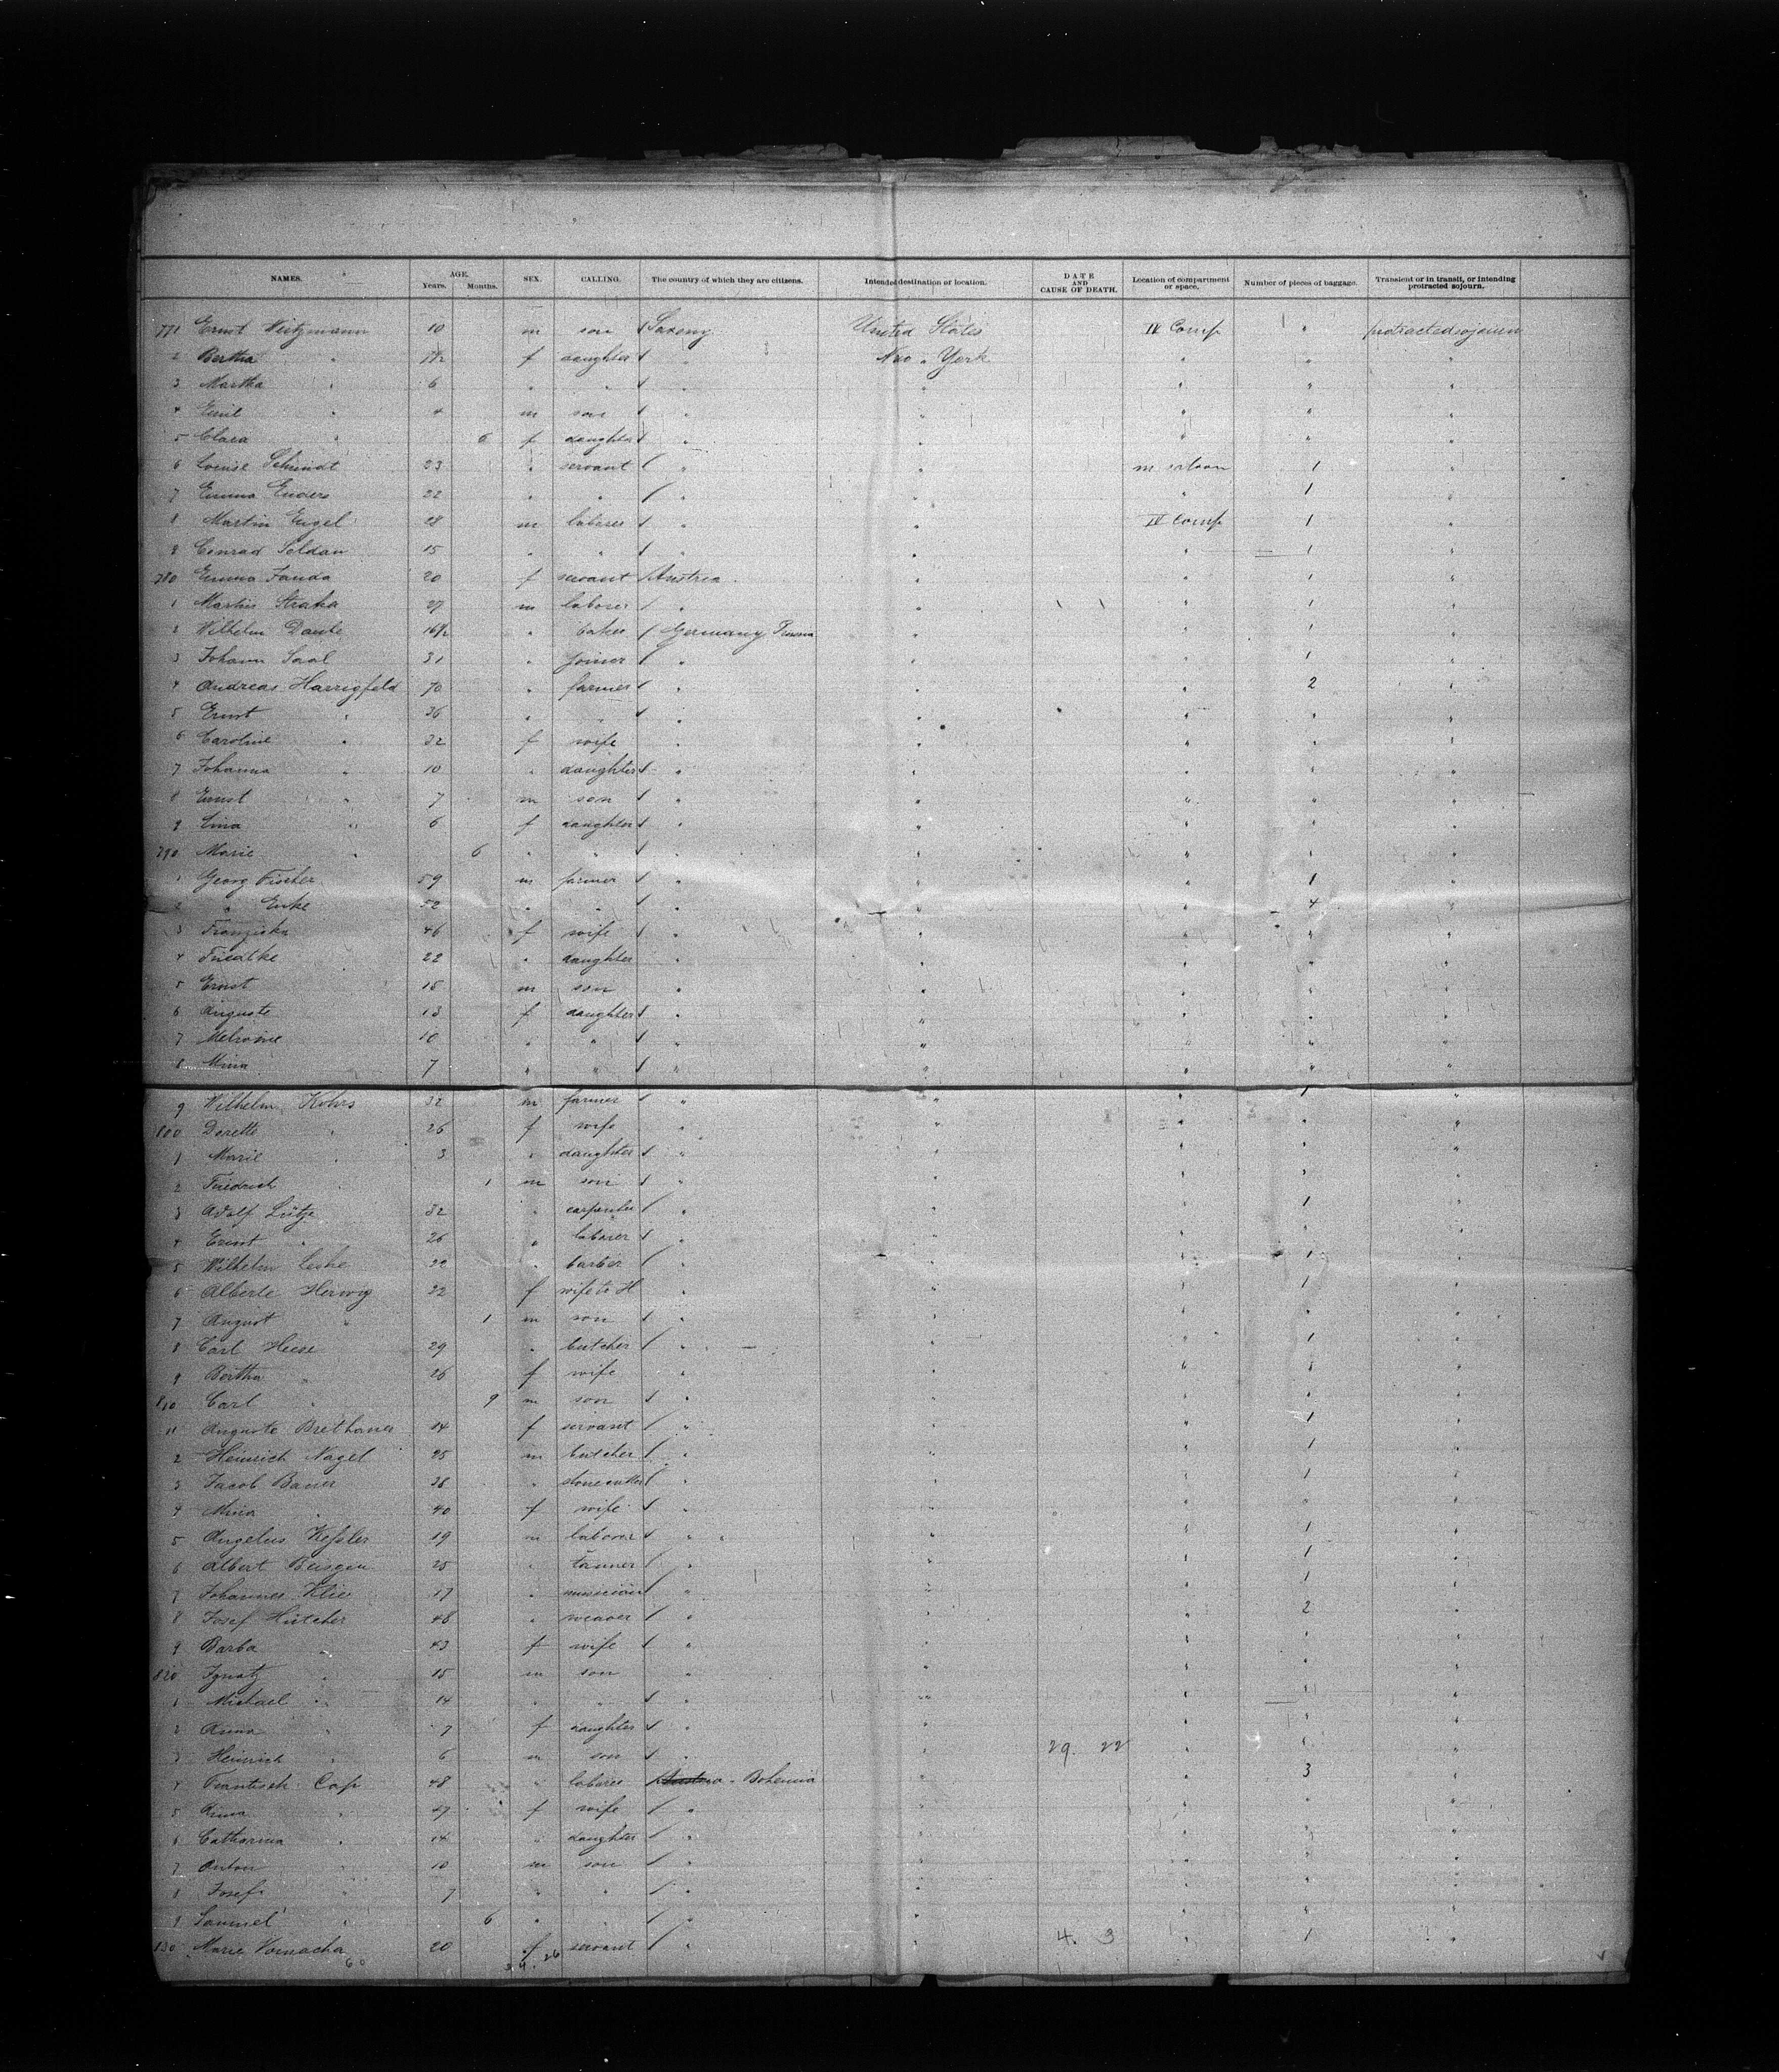 NAMES. AGE. Years. Months. SEX. CALLING. The country of which they are citizens. Intended destination or location. DATE AND CAUSE OF DEATH. Location of compartment or space. Number of pieces of baggage. Transient or in transit, or intending protracted sojourn.
771 Ernst Weitzmann 10 m son Saxony United States IV Comp " protracted sojourn
2 Bertha " f daughter " New York " " "
3 Martha " 6 " " " " " "
4 Emil " 4 m son " " " " "
5 Clara " 6 f daughter " " " " "
6 Louise Schmidt 23 " servant " " m saloon 1 "
7 Emma Enders 22 " " " " " 1 "
8 Martin Engel 18 m laborer " " IV Comp 1 "
9 Conrad Soldan 15 " " " " " 1 "
780 Emma Fanda 20 f servant Austria " " 1 "
1 Martin Straka 27 m laborer " " " 1 "
2 Wilhelm Daube 16½ " baker Germany Prussia " " 1 "
3 Johann Saal 31 " joiner " " " 1 "
4 Andreas Harrigfeld 70 " farmer " " " 2 "
5 Ernst " 36 " " " " " " "
6 Caroline " 32 f wife " " " " "
7 Johanna " 10 " daughter " " " " "
8 Ernst " 7 m son " " " " "
9 Lina " 6 f daughter " " " " "
790 Marie " 6 " " " " " " "
1 Georg Fischer 59 m farmer " " " 1 "
2 " Enke 52 " " " " " 4 "
3 Franziska 46 f wife " " " " "
4 22 " daughter " " " " "
5 Ernst 15 m son " " " " "
6 Auguste 13 f daughter " " " " "
7 10 " " " " " " "
8 Mina 7 " " " " " " "
9 Wilhelm Kohrs 32 m farmer " " " 1 "
800 Dorette 26 f wife " " " " "
1 Marie " 3 " daughter " " " " "
2 Friedrich " 1 m son " " " " "
3 Adolf Lütje 32 " carpenter " " " 1 "
4 Ernst " 26 " laborer " " " " "
5 Wilhelm 22 " barber " " " 1 "
6 Alberte Herwig 22 f wife to H " " " 1 "
7 August " 1 m son " " " " "
8 Carl Heese 29 " butcher " " " 1 "
9 Bertha " 26 f wife " " " " "
810 Carl " 9 m son " " " " "
11 Auguste Brethauer 14 f servant " " " 1 "
2 Heinrich Nagel 25 m butcher " " " 1 "
3 Jacob Bauer 38 " stonecutter " " " 1 "
4 Mina " 40 f wife " " " " "
5 Angelus Keßler 19 m laborer " " " 1 "
6 Albert 25 " tanner " " " 1 "
7 Johannes Klie 17 " musician " " " 1 "
8 Josef Hütcher 46 " weaver " " " 2 "
9 Barba " 43 f wife " " " " "
820 Ignatz " 15 m son " " " " "
1 Michael " 14 " " " " " " "
2 Anna " 7 f daughter " " " " "
3 Heinrich " 6 m son " " 29. 22 " " "
4 Frantisek Cap 48 " laborer Austria - Bohemia " " 3 "
5 Anna " 47 f wife " " " " "
6 Catharina " 14 " daughter " " " " "
7 Anton " 10 m son " " " " "
8 Josef " 7 " " " " " " "
9 Samuel " 6 " " " " " " "
830 Marie Vomacha 20 f servant " " 4. 3 " 1 "
60 34. 26